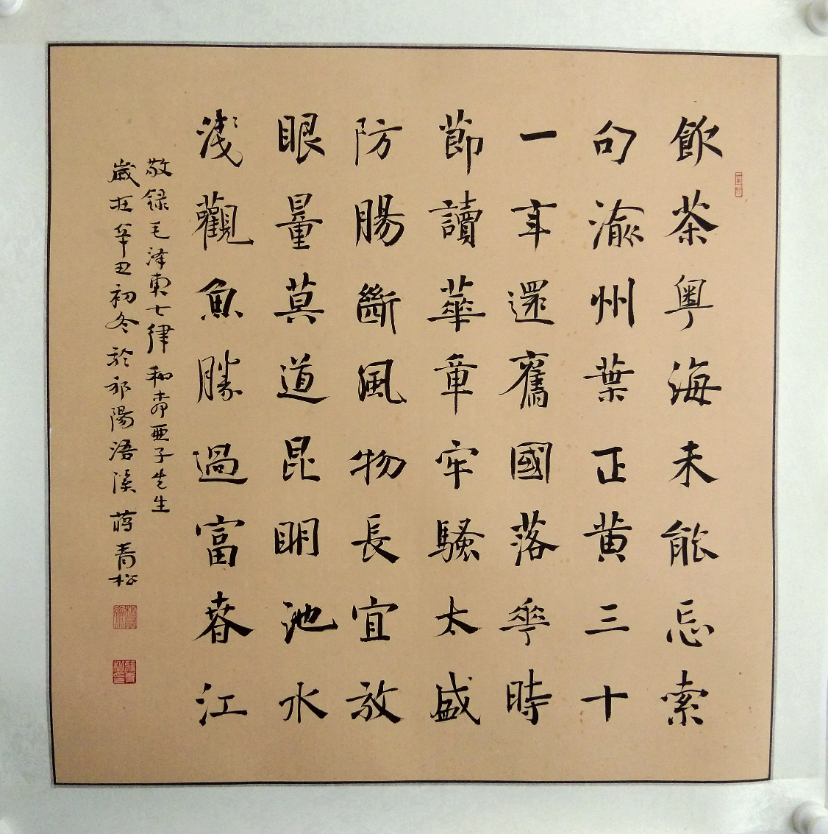 飲茶粵海未能忘索
句渝州葉正黄三十
一年還舊國落華時
節讀華章牢騷太盛
防腸斷風物長宜放
眼量莫道昆明池水
淺觀魚勝過富春江
敬録毛澤東七律和柳亞子先生
歲在辛丑初冬於祁陽浯溪蔣青松